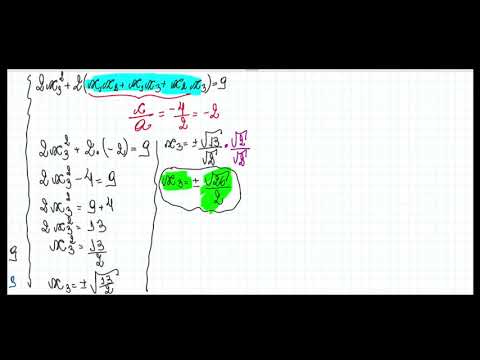 2x₃² + 2(x₁x₂ + x₁x₃ + x₂x₃) = 9
c/a = -4/2 = -2
2x₃² + 2·(-2) = 9
2x₃² - 4 = 9
2x₃² = 9 + 4
2x₃² = 13
x₃² = 13/2
x₃ = ±√(13/2)
x₃ = ± √13/√2 · √2/√2
x₃ = ± √26/2
9